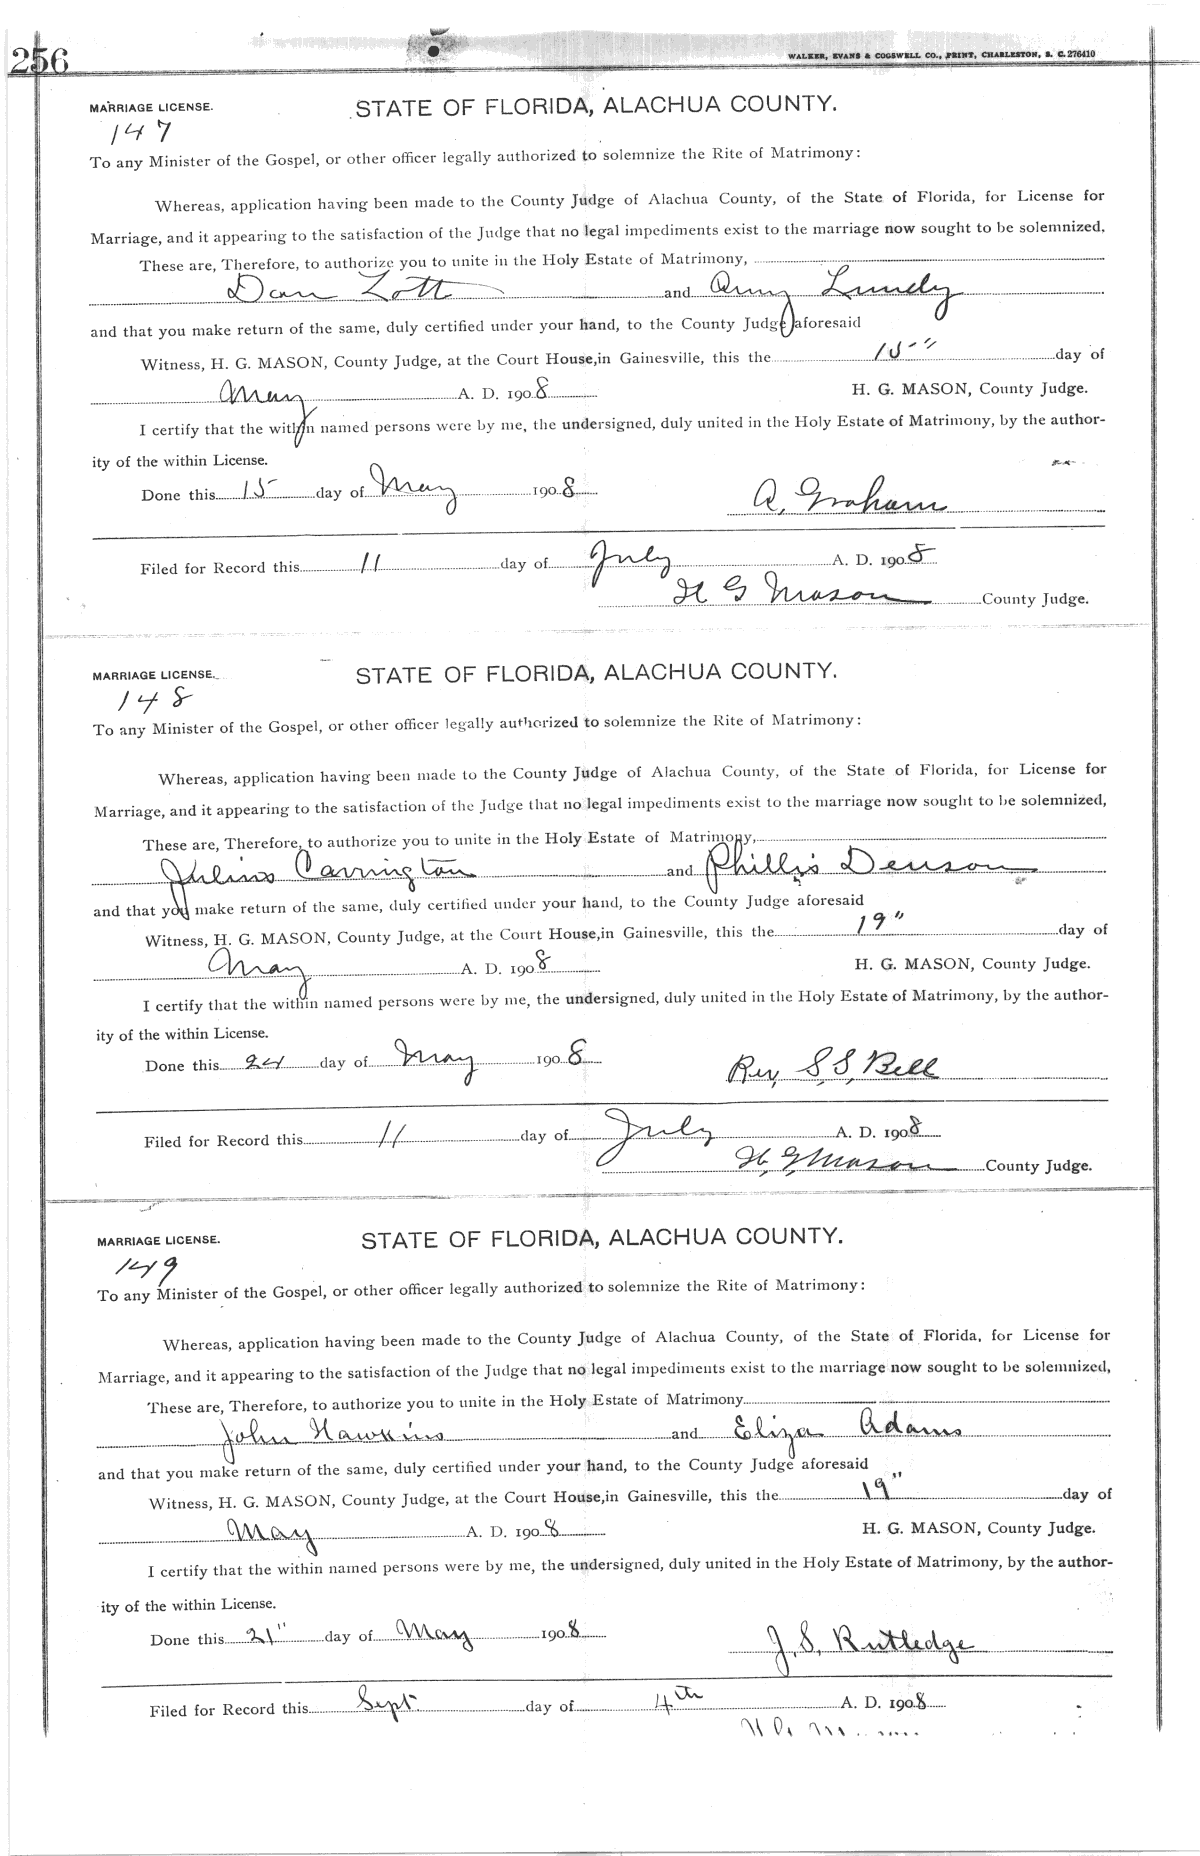 256
WALKER, EVANS & COGSWELL CO., PRINT, CHARLESTON, S. C. 276410
MARRIAGE LICENSE. STATE OF FLORIDA, ALACHUA COUNTY.
147
To any Minister of the Gospel, or other officer legally authorized to solemnize the Rite of Matrimony:
Whereas, application having been made to the County Judge of Alachua County, of the State of Florida, for License for
Marriage, and it appearing to the satisfaction of the Judge that no legal impediments exist to the marriage now sought to be solemnized,
These are, Therefore, to authorize you to unite in the Holy Estate of Matrimony,
Dan Lott and Anny Lundy
and that you make return of the same, duly certified under your hand, to the County Judge aforesaid
Witness, H. G. MASON, County Judge, at the Court House, in Gainesville, this the 15" day of
May A. D. 1908 H. G. MASON, County Judge.
I certify that the within named persons were by me, the undersigned, duly united in the Holy Estate of Matrimony, by the author-
ity of the within License.
Done this 15 day of May 1908 A. Graham
Filed for Record this 11 day of July A. D. 1908
H G Mason County Judge.
MARRIAGE LICENSE. STATE OF FLORIDA, ALACHUA COUNTY.
148
To any Minister of the Gospel, or other officer legally authorized to solemnize the Rite of Matrimony:
Whereas, application having been made to the County Judge of Alachua County, of the State of Florida, for License for
Marriage, and it appearing to the satisfaction of the Judge that no legal impediments exist to the marriage now sought to be solemnized,
These are, Therefore, to authorize you to unite in the Holy Estate of Matrimony,
Julius Carrington and Phillis Denson
and that you make return of the same, duly certified under your hand, to the County Judge aforesaid
Witness, H. G. MASON, County Judge, at the Court House, in Gainesville, this the 19" day of
May A. D. 1908 H. G. MASON, County Judge.
I certify that the within named persons were by me, the undersigned, duly united in the Holy Estate of Matrimony, by the author-
ity of the within License.
Done this 24 day of May 1908 Rev, S, S, Bell
Filed for Record this 11 day of July A. D. 1908
H, G, Mason County Judge.
MARRIAGE LICENSE. STATE OF FLORIDA, ALACHUA COUNTY.
149
To any Minister of the Gospel, or other officer legally authorized to solemnize the Rite of Matrimony:
Whereas, application having been made to the County Judge of Alachua County, of the State of Florida, for License for
Marriage, and it appearing to the satisfaction of the Judge that no legal impediments exist to the marriage now sought to be solemnized,
These are, Therefore, to authorize you to unite in the Holy Estate of Matrimony
John Hawkins and Eliza Adams
and that you make return of the same, duly certified under your hand, to the County Judge aforesaid
Witness, H. G. MASON, County Judge, at the Court House, in Gainesville, this the 19" day of
May A. D. 1908 H. G. MASON, County Judge.
I certify that the within named persons were by me, the undersigned, duly united in the Holy Estate of Matrimony, by the author-
ity of the within License.
Done this 21" day of May 1908 J. S. Rutledge
Filed for Record this Sept. day of 4th A. D. 1908